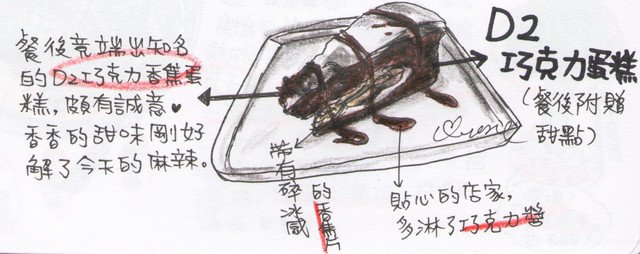 餐後竟端出知名
的D2巧克力香蕉蛋
糕，頗有誠意♥
香香的甜味剛好
解了今天的麻辣。
D2
巧克力蛋糕
(餐後附贈
甜點)
帶有碎冰感
的香蕉片
貼心的店家，
多淋了巧克力醬